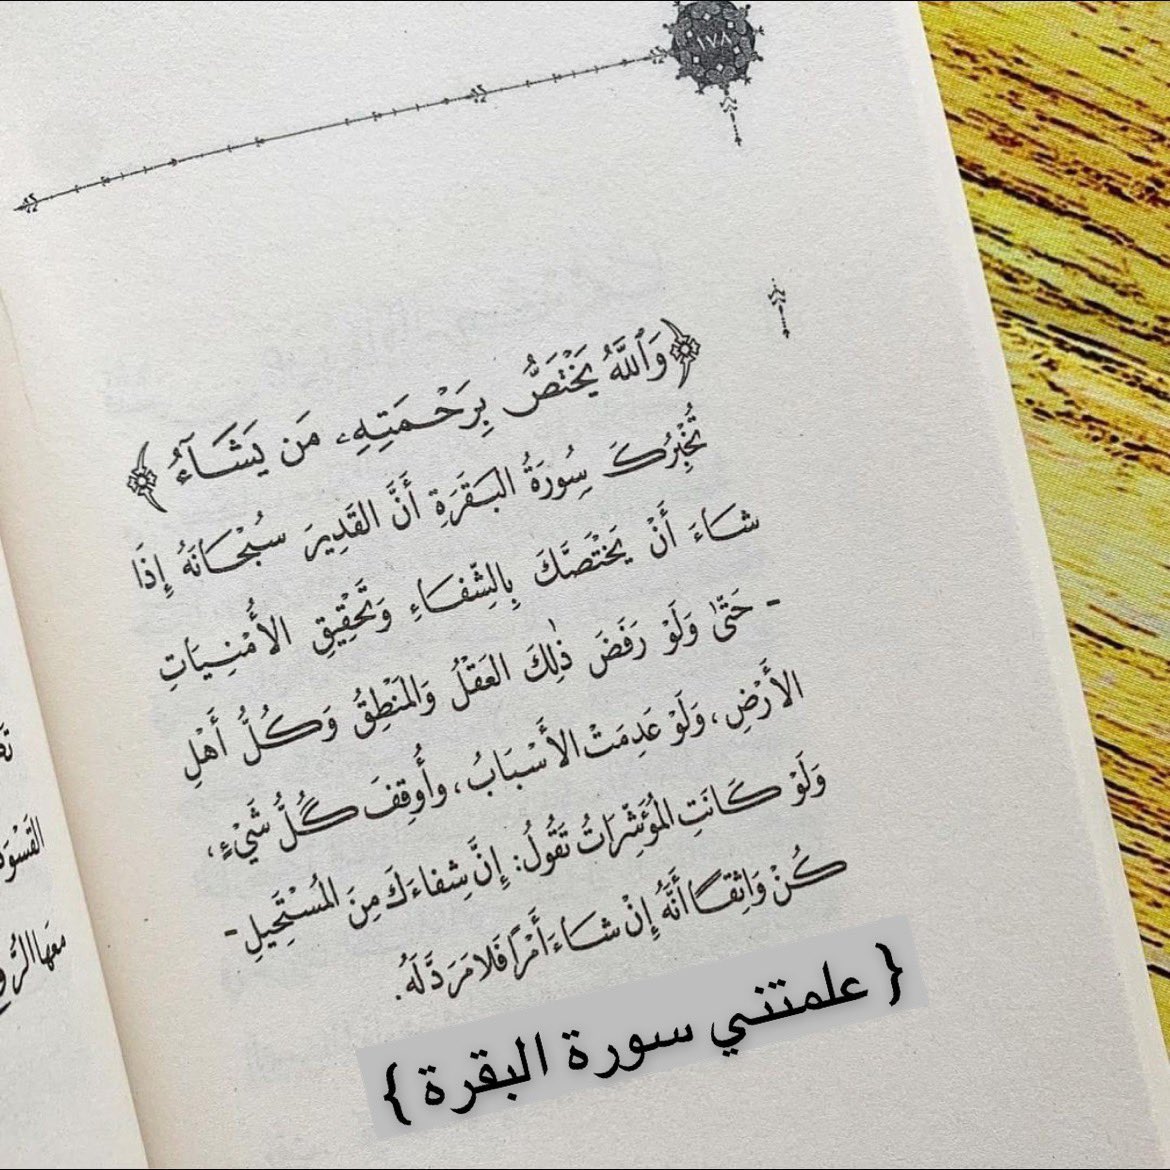 ١٧٨
﴿وَٱللَّهُ يَخْتَصُّ بِرَحْمَتِهِۦ مَن يَشَآءُ﴾
تُخْبِرُكَ سُورَةُ البَقَرَةِ أَنَّ القَدِيرَ سُبْحَانَهُ إِذَا
شَاءَ أَنْ يَخْتَصَّكَ بِالشِّفَاءِ وَتَحْقِيقِ الأُمْنِيَاتِ
- حَتَّى وَلَوْ رَفَضَ ذٰلِكَ العَقْلُ وَالمَنْطِقُ وَكُلُّ أَهْلِ
الأَرْضِ، وَلَوْ عَدِمَتْ الأَسْبَابُ، وأُوقِفَ كُلُّ شَيْءٍ،
وَلَوْ كَانَتِ المُؤَشِّرَاتُ تَقُولُ: إِنَّ شِفَاءَكَ مِنَ المُسْتَحِيلِ -
كُنْ وَاثِقًا أَنَّهُ إِنْ شَاءَ أَمْرًا فَلَا مَرَدَّ لَهُ.
{ علمتني سورة البقرة }
القَسْوَة
معها الرُّ